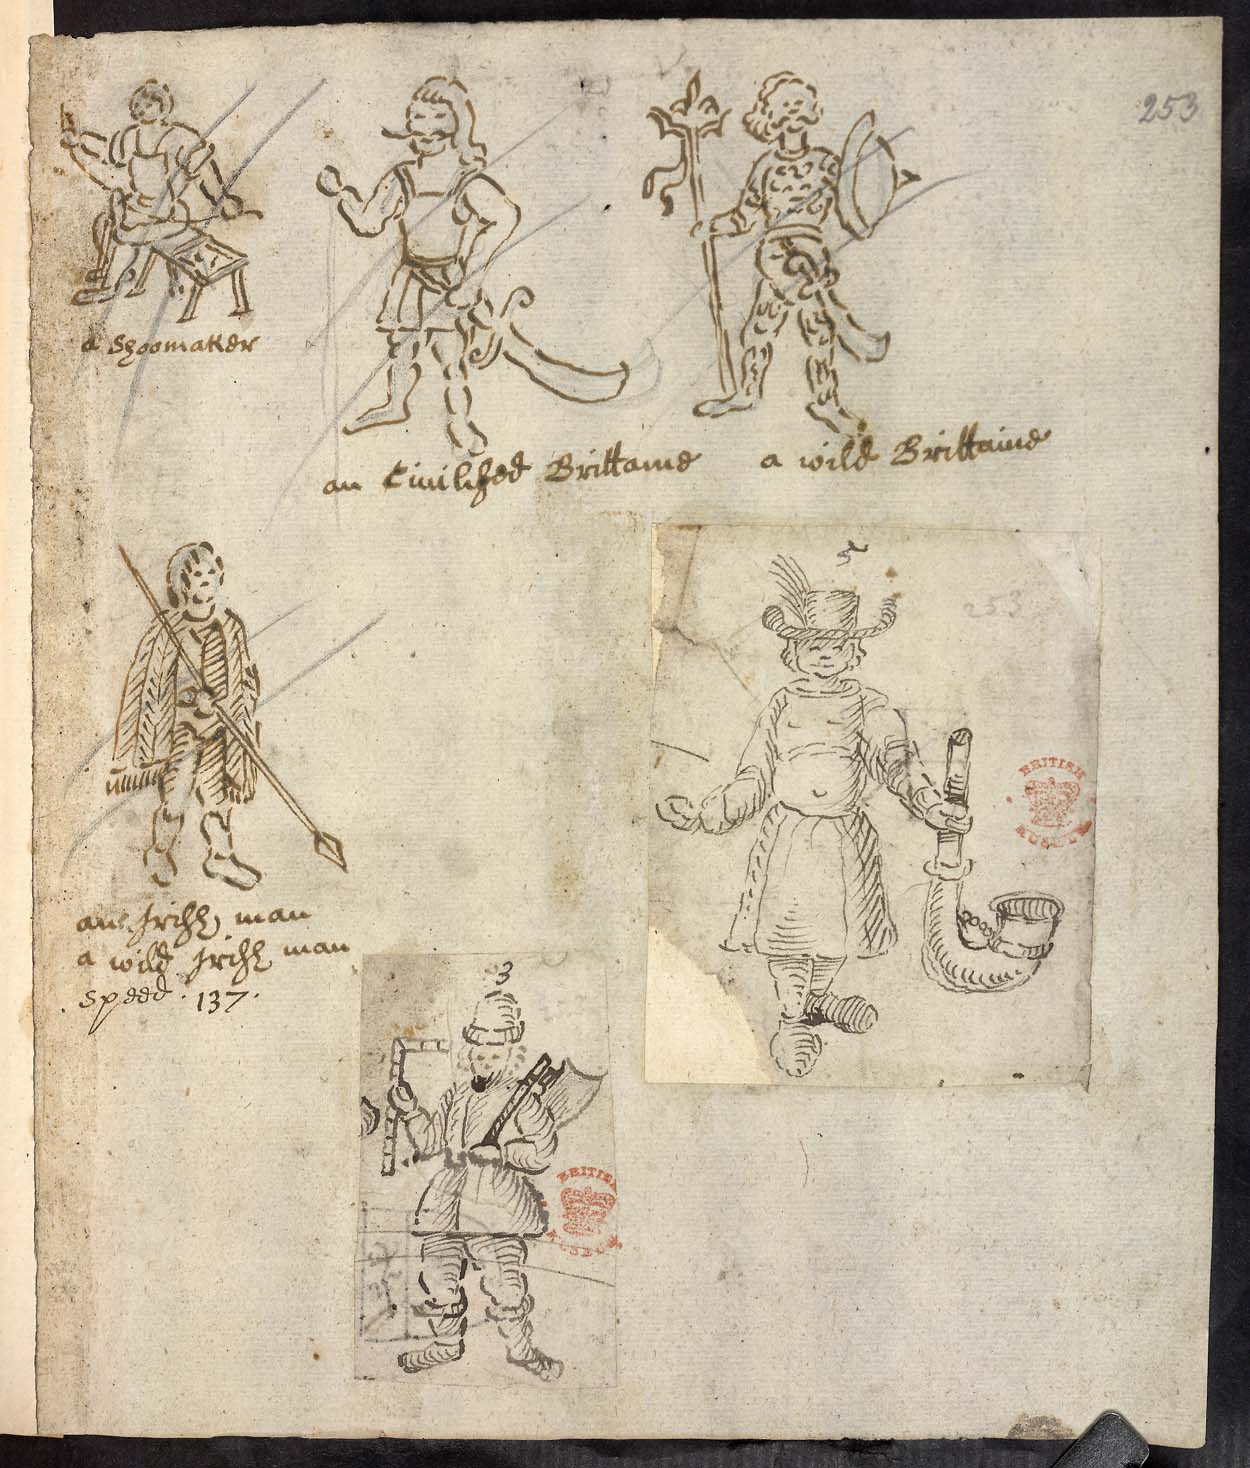 253
a Shoomaker
an Civilised Brittaine
a wild Brittaine
5
253
BRITISH
MUSEUM
an Irish man
a wild Irish man
speed. 137.
3
BRITISH
MUSEUM